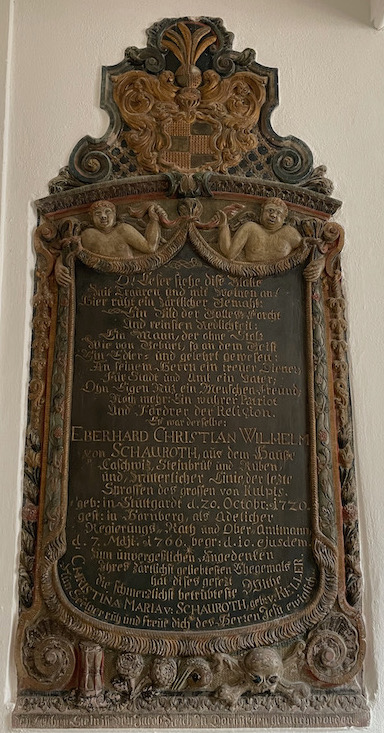 O! Leser siehe dise Maale
mit Trauren und mit Weinen an!
Hier ruht ein Zärtlicher Gemahl:
Ein Bild der Gottes-Forcht
Und reinsten Redlichkeit:
Ein Mann, der ohne Stolz
Wie von Geburt, so an dem Geist
Ein Edler- und gelehrt gewesen:
An seinem Herrn ein treuer Diener,
Für Stadt und Amt ein Vater;
Ohn Eigen-Nuz ein Menschen-Freund;
Noch mehr: Ein wahrer Patriot
Und Fördrer der Religion.
Es war derselbe:
EBERHARD CHRISTIAN WILHELM
von SCHAUROTH, aus dem Hauße
Laschwiz, Steinbrük und Rüben
und Särtterlicher Linie der lezte
Sprossen des grossen von Kulpis.
geb: in Stuttgardt d. 20. Octobr: 1720.
gest: in Hornberg, als Adelicher
Regierungs-Rath und Ober-Amtmann
d. 7. Maji. 1766. begr: d. 10. ejusdem.
Zum unvergeßlichen Angedenken
Ihres Zärtlich geliebtesten Ehegemals
hat dises gesezt
die schmerzlichst betrübteste Wittwe
CHRISTINA MARIA v: SCHAUROTH, geb: v: KELLER
ruh und freue dich des Herzen Jesu ewiglich